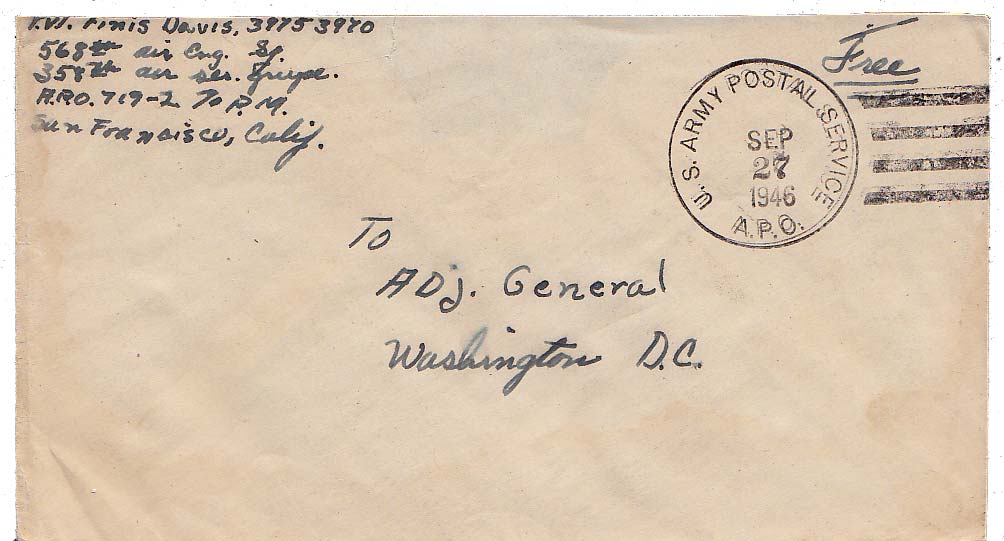 Pvt. Finis Davis, 39753970
568th air Eng. Sq.
358th air ser. Group.
A.P.O. 719-2 % P.M.
San Fransisco, Calif.
Free
U.S. ARMY POSTAL SERVICE
SEP
27
1946
A.P.O.
To
ADj. General
Washington D.C.